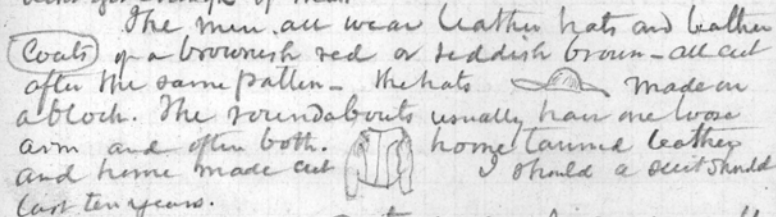 The men all wear leather hats and leather
Coats of a brownish red or reddish brown - all cut
after the same patten - the hats made on
a block. The roundabouts usually have one loose
arm and often both. home tanned leather
and home made cut I should a suit should
last ten years.